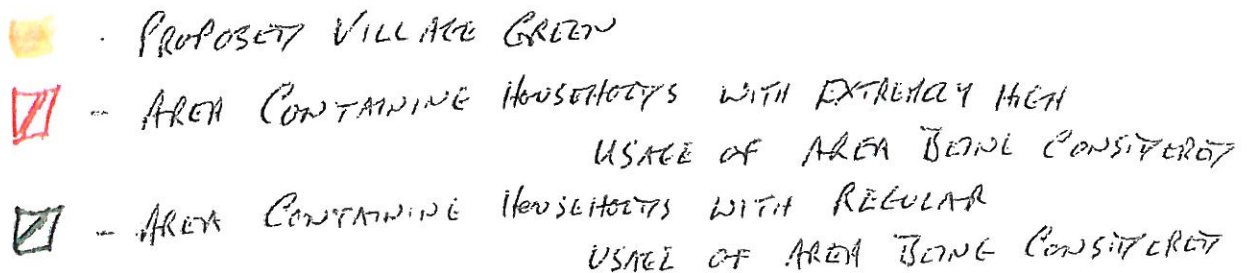 - PROPOSED VILLAGE GREEN
- AREA CONTAINING HOUSEHOLDS WITH EXTREMELY HIGH
USAGE OF AREA BEING CONSIDERED
- AREA CONTAINING HOUSEHOLDS WITH REGULAR
USAGE OF AREA BEING CONSIDERED